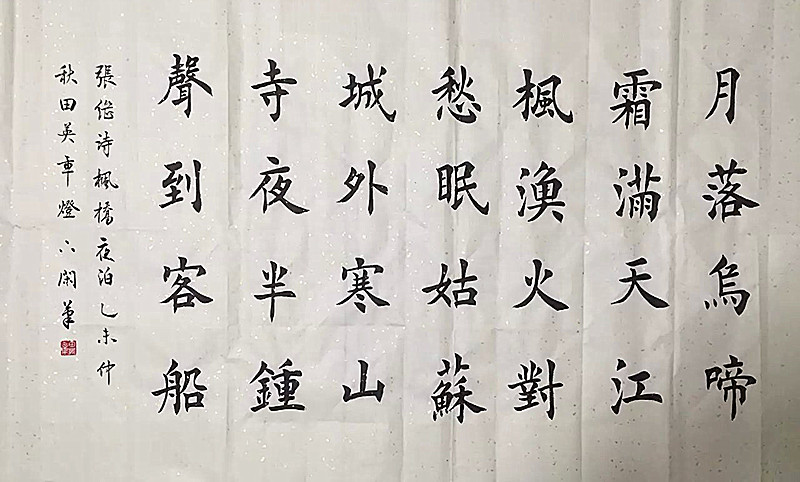 月落烏啼
霜滿天江
楓漁火對
愁眠姑蘇
城外寒山
寺夜半鍾
聲到客船
張継诗楓橋夜泊乙未仲
秋田英章燈下閑筆